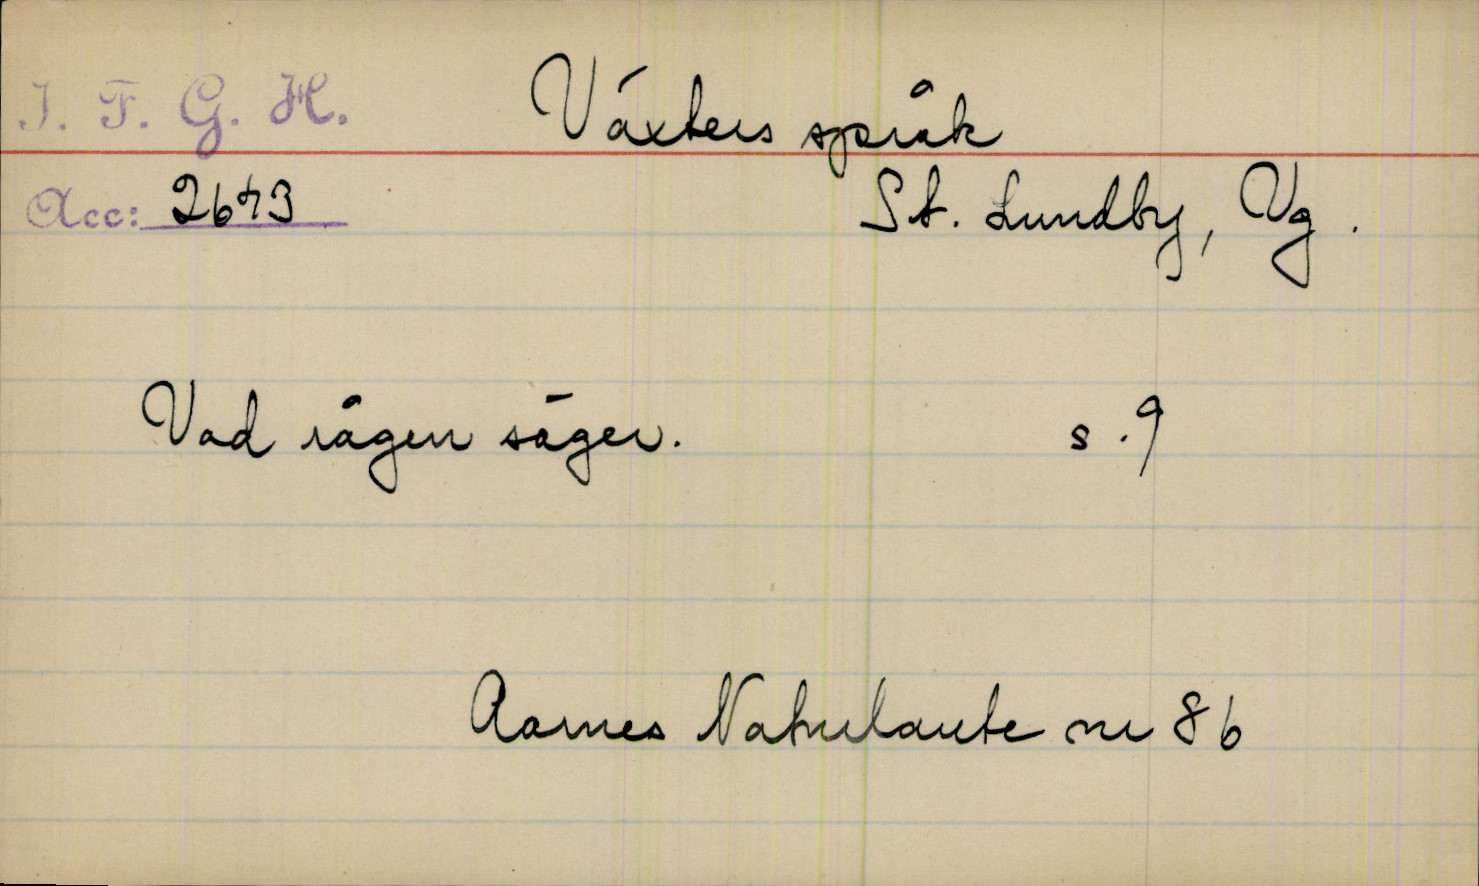 I. F. G. H.
Växters språk
Acc: 2673
St. Lundby, Vg.
Vad rågen säger. s. 9
Aarnes Naturlaute nr 86